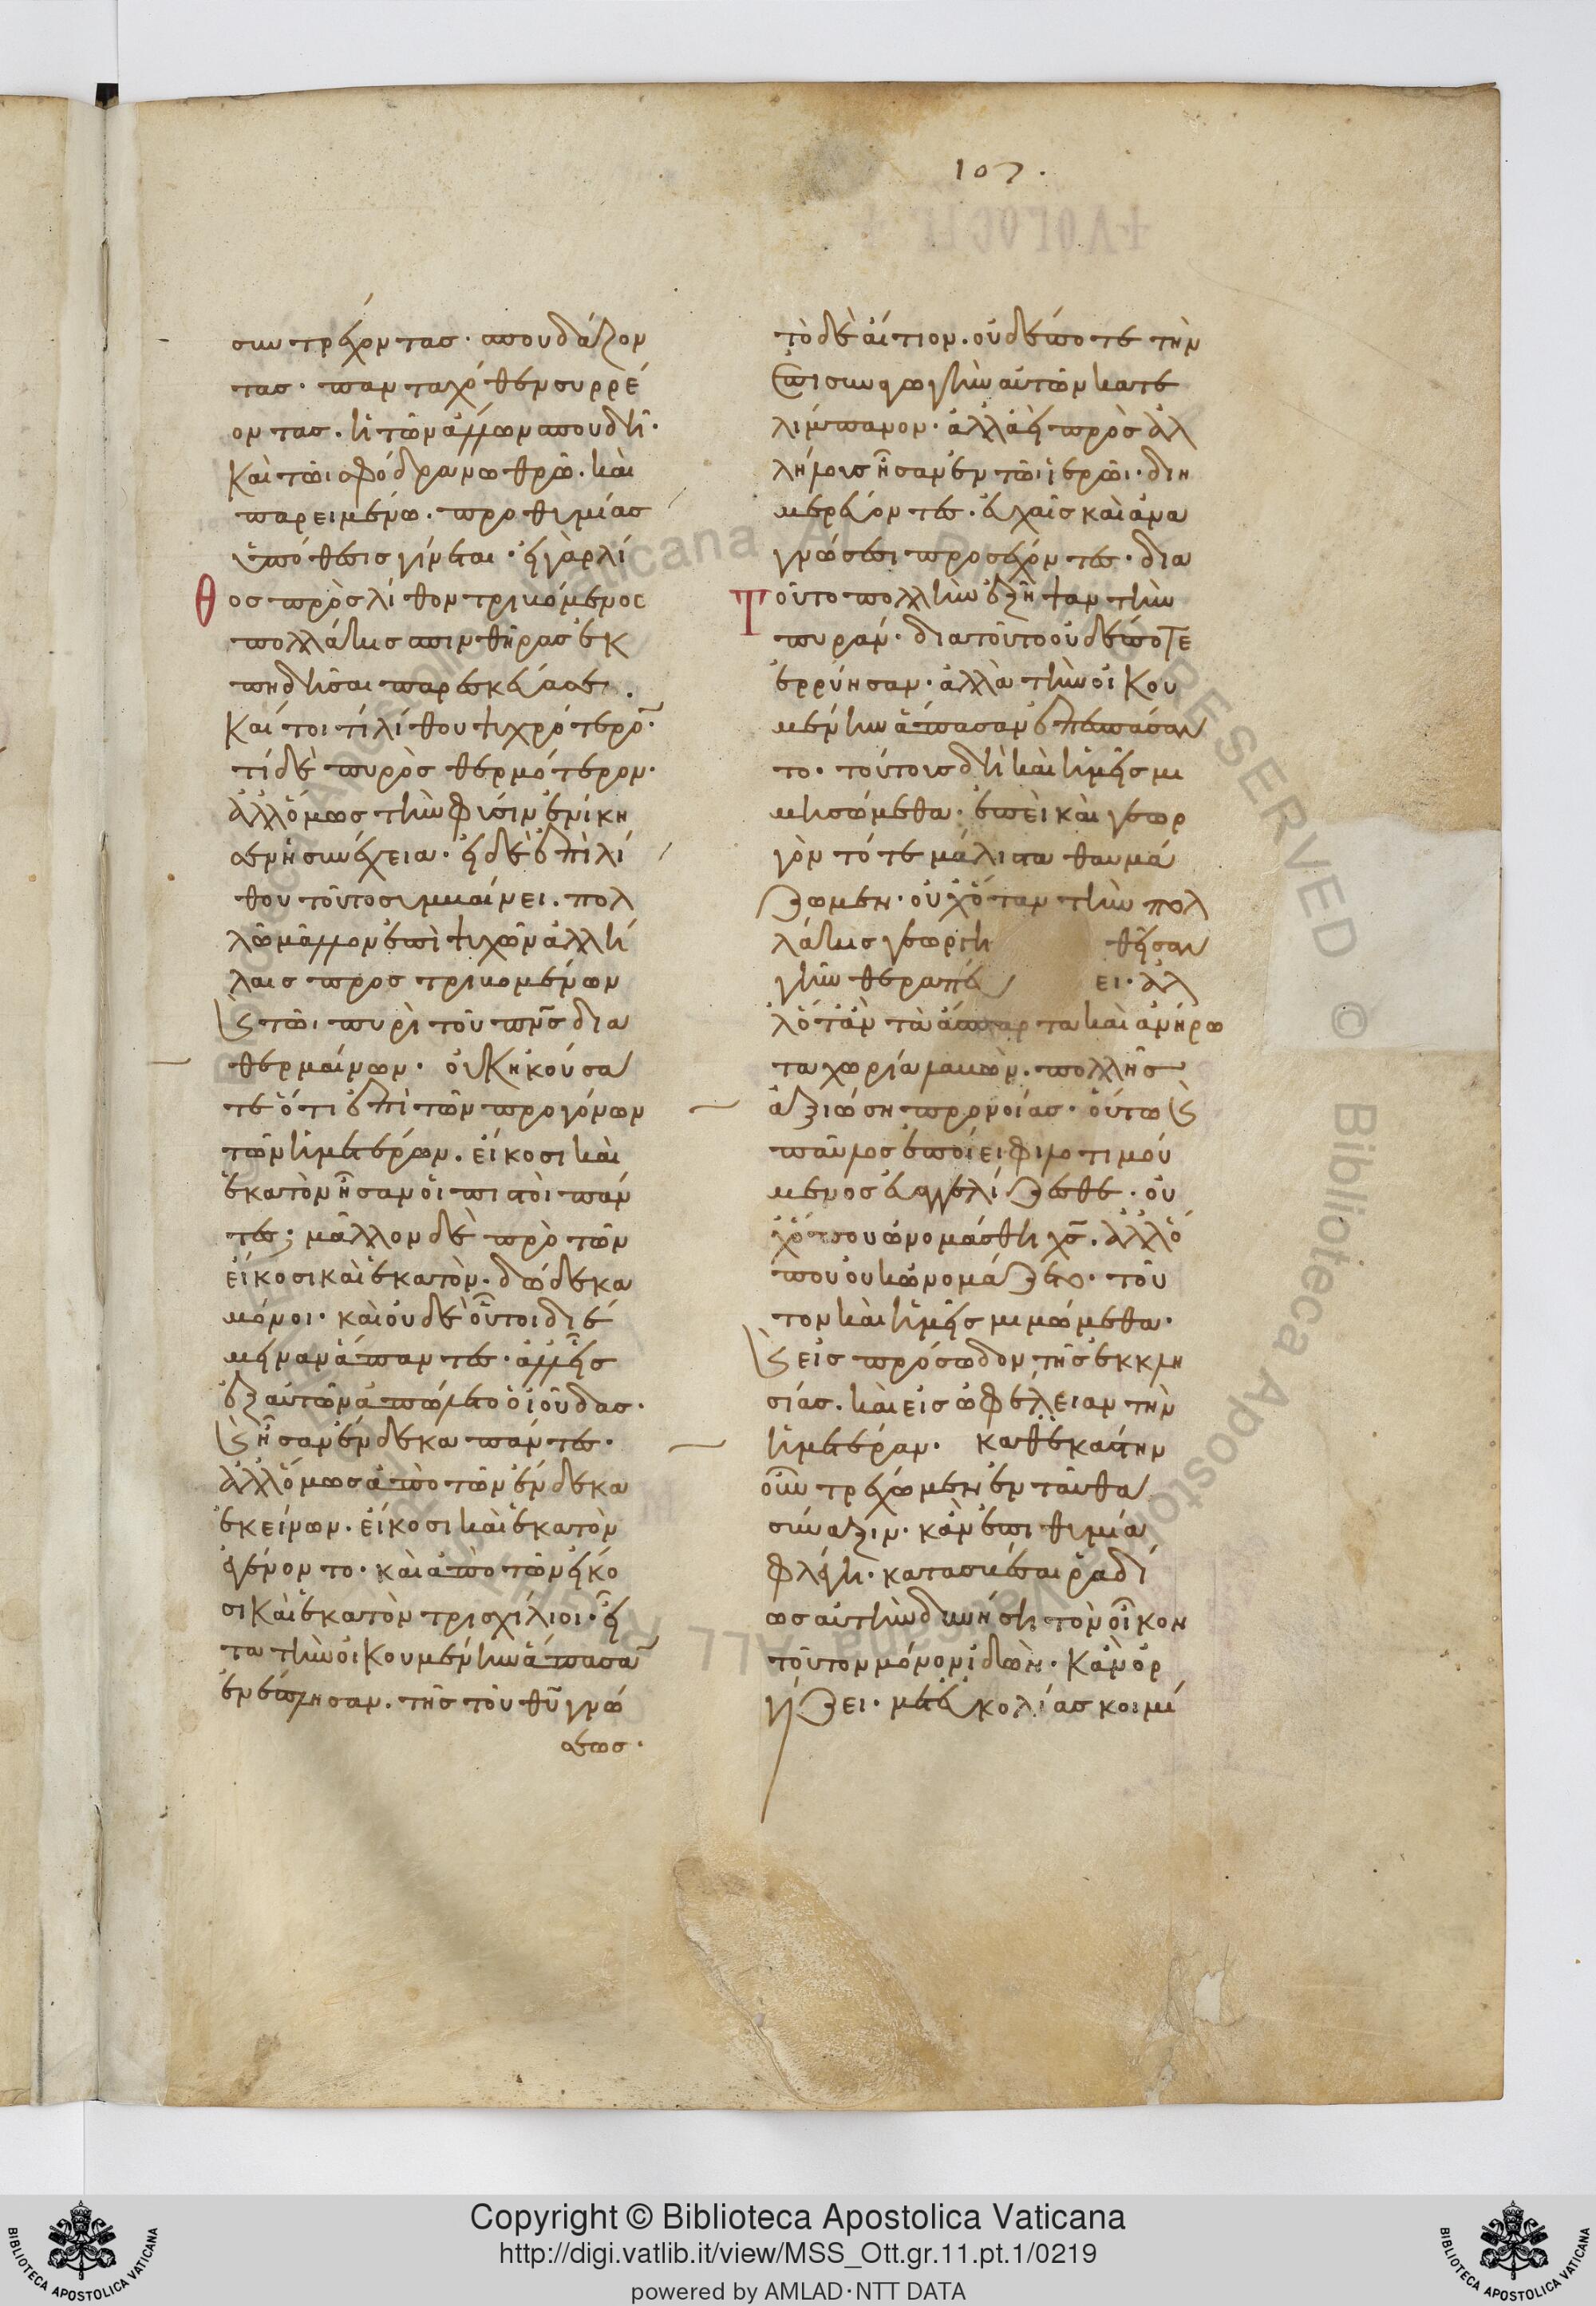 107.
συντρέχοντας· σπουδάζον
τας· πανταχόθεν συρρέ
οντας. ἡ τῶν ἄλλων σπουδὴ·
καὶ τῶι σφόδρα νωθρῶ. καὶ
παρειμένω. προθυμίας
ὑπόθεσις γίνεται· εἰ γὰρ λί
θος πρὸς λίθον τριβόμενος
πολλάκις σπινθῆρας ἐκ
πηδῆσαι παρεσκεύασε.
καί τοι τί λίθου ψυχρότερο̄·
τί δὲ πυρὸς θερμότερον·
ἀλλ' ὅμως τὴν φύσιν ἐνίκη
σεν ἡ συνέχεια· εἰ δὲ ἐπὶ λί
θου τοῦτο συμβαίνει. πολ
λῶ μᾶλλον ἐπὶ ψυχῶν ἀλλή
λαις προστριβομένων
ϗ τῶι πυρὶ τοῦ πν̅ς δια
θερμαίνων· οὐκ ἠκούσα
τε ὅτι ἐπὶ τῶν προγόνων
τῶν ἡμετέρων. εἴκοσι καὶ
ἑκατὸν ἦσαν οἱ πιστοὶ πάν
τες; μᾶλλον δὲ πρὸ τῶν
εἴκοσι καὶ ἑκατὸν. δώδεκα
μόνοι· καὶ οὐδὲ οὗτοι διέ
μειναν ἅπαντες. ἀλλ' εἷς
ἐξ αὐτῶν ἀπώλετο ὁ ἰούδας·
ϗ ἦσαν ἕνδεκα πάντες.
ἀλλ' ὅμως ἀπὸ τῶν ἕνδεκα
ἐκείνων. εἴκοσι καὶ ἑκατὸν
ἐγένοντο. καὶ ἀπὸ τῶν εἴκο
σι καὶ ἑκατὸν τρισχίλιοι· εἶ
τα τὴν οἰκουμένην ἅπασα̅
ἐνέπλησαν. τῆς τοῦ θ̅υ γνώ
σεως.
τὸ δὲ αἴτιον. οὐδέποτε τὴν
ἐπισυναγωγὴν αὐτῶν κατε
λίμπανον· ἀλλ' ἀεὶ πρὸς ἀλ
λήλοις ἦσαν ἐν τῶι ἱερῶι· διη
μερεύοντες. εὐχαῖς καὶ ἀνα
γνώσεσι προσέχοντες. δια
τοῦτο πολλὴν ἐξῆψαν τὴν
πυράν. διατοῦτο οὐδέποτε
ἐρρύησαν. ἀλλὰ τὴν οἰκου
μένην ἅπασαν ἐπεσπάσαν
το. τούτοις δὴ καὶ ἡμεῖς μι
μησώμεθα. ἐπεὶ καὶ γεωρ
γὸν τότε μάλιστα θαυμά
ζωμεν. οὐχ ὅταν τὴν πολ
λάκις γεωργη θεῖσαν
γῆν θεραπεύ ει. ἀλ
λ' ὅταν τὰ ἄσπαρτα καὶ ἀνήρω
τα χωρία λαβὼν. πολλῆς
ἀξιώση προνοίας. οὕτως
παῦλος ἐποίει φιλοτιμού
μενος εὐαγγελίζεσθε. οὐ
χ' ὅπου ὠνομάσθη χ̅ς. ἀλλ' ὅ
που οὐκ ὠνομάζετο. τοῦ
τον καὶ ἡμεῖς μιμώμεθα.
ϗ εἰς πρόσωδον τῆς ἐκκλη
σίας. καὶ εἰς ὠφέλειαν τὴν
ἡμετέραν. καθ' ἑκάστην
οὖν τρέχωμεν ἐνταῦθα
σύναξιν. κἂν ἐπιθυμία
φλέγη. κατασβέσαι ῥαδί
ως αὐτὴν δυνήση τὸν οἶκον
τοῦτον μόνον ἰδὼν. κἂν ὀρ
γίζει. μετ' εὐκολίας κοιμί